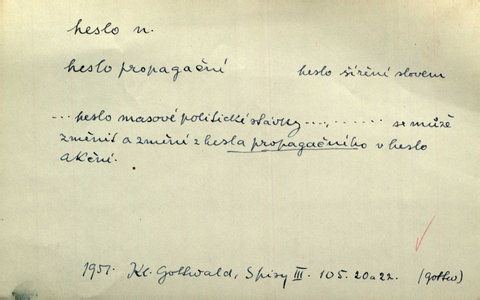 heslo n.
heslo propagační heslo šíření slovem
... heslo masové politické stávky ..., ...... se může
změnit a změní z hesla propagačního v heslo
akční.
1951. Kl. Gottwald, Spisy III. 105. 20 a 22. (gottw)